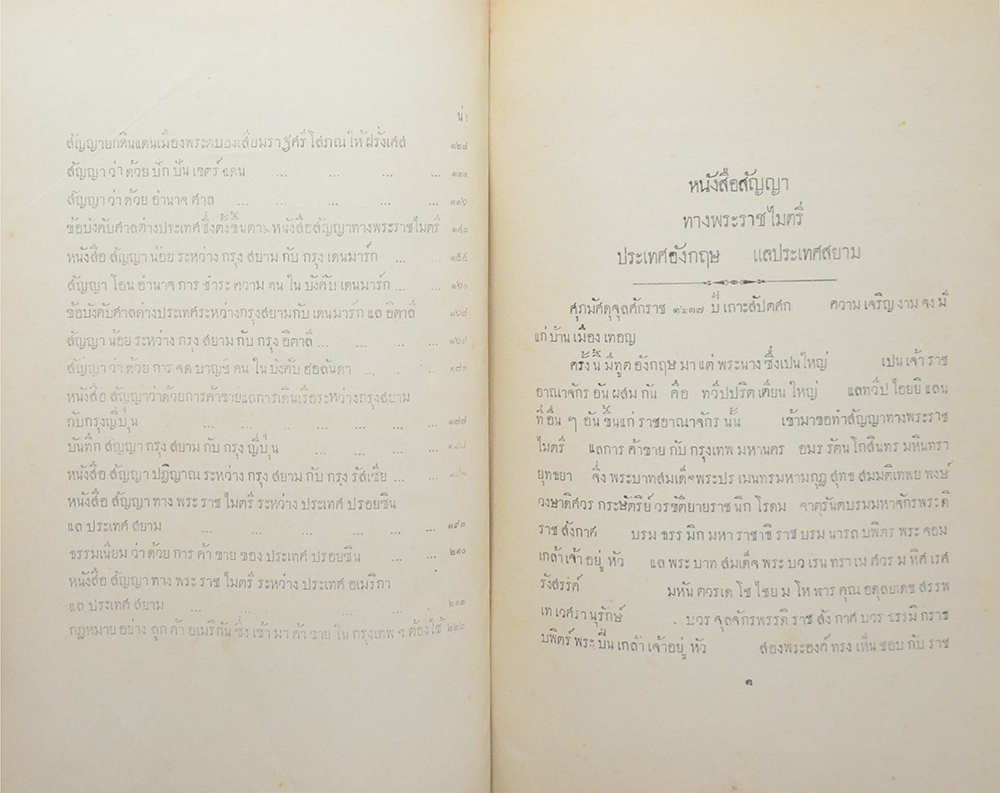 น่า
สัญญายกดินแดนเมืองพระตบองเสียมราฐศรีโสภณให้ฝรั่งเศส ๑๒๘
สัญญา ว่า ด้วย ปัก ปัน เขตร์ แดน ... ... ... ...
สัญญา ว่า ด้วย อำนาจ ศาล ... ... ... ... ... ๑๓๖
ข้อบังคับศาลต่างประเทศซึ่งตั้งขึ้นตาม หนังสือสัญญาทางพระราชไมตรี
หนังสือ สัญญา น้อย ระหว่าง กรุง สยาม กับ กรุง เดนมาร์ก ... ... ๑๕๕
สัญญา โอน อำนาจ การ ชำระ ความ คน ใน บังคับ เดนมาร์ก ... ...
ข้อบังคับศาลต่างประเทศระหว่างกรุงสยามกับ เดนมาร์ก แล อิตาลี ๑๖๘
สัญญา น้อย ระหว่าง กรุง สยาม กับ กรุง อิตาลี ... ... ... ... ๑๖๙
สัญญา ว่า ด้วย การ จด บาญชี คน ใน บังคับ ฮอลันดา ... ... ...
หนังสือ สัญญาว่าด้วยการค้าขายแลการเดินเรือระหว่างกรุงสยาม
กับกรุงญี่ปุ่น ... ... ... ... ... ๑๗๗
บันทึก สัญญา กรุง สยาม กับ กรุง ญี่ปุ่น ... ... ... ...
หนังสือ สัญญา ปฏิญาณ ระหว่าง กรุง สยาม กับ กรุง รัสเซีย ... ...
หนังสือ สัญญา ทาง พระ ราช ไมตรี ระหว่าง ประเทศ ปรอยซิน
แล ประเทศ สยาม ... ... ... ... ... ๑๙๓
ธรรมเนียม ว่า ด้วย การ ค้า ขาย ของ ประเทศ ปรอยซิน ... ... ๒๑๐
หนังสือ สัญญา ทาง พระ ราช ไมตรี ระหว่าง ประเทศ อเมริกา
แล ประเทศ สยาม ... ... ... ... ...
กฎหมาย อย่าง ลูก ค้า อเมริกัน ซึ่ง เข้า มา ค้า ขาย ใน กรุงเทพ ฯ ต้องใช้
หนังสือสัญญา
ทางพระราชไมตรี
ประเทศอังกฤษ แลประเทศสยาม
ศุภมัศดุจุลศักราช ๑๒๑๗ ปี เถาะสัปตศก ความ เจริญ งาม จง มี
แก่ บ้าน เมือง เทอญ
ครั้ง นี้ มีทูต อังกฤษ มา แต่ พระนาง ซึ่งเปนใหญ่ เปน เจ้า ราช
อาณาจักร อัน ผสม กัน คือ ทวีปบริตเตียน ใหญ่ แลทวีป ไอยยิ แลน
ที่ อื่น ๆ อัน ขึ้นแก่ ราชอาณาจักร นั้น เข้ามาขอทำสัญญาทางพระราช
ไมตรี แลการ ค้าขาย กับ กรุงเทพ มหานคร อมร รัตนโกสินทร มหินทรา
ยุทธยา จึ่ง พระบาทสมเด็จพระปร เมนทรมหามกุฏ สุทธ สมมติเทพย พงษ์
วงษาดิศวร กระษัตริย์ วรขัติยายราช นิก โรดม จาตุรันตบรมมหาจักรพรรดิ
ราช สังกาศ บรม ธรร มิก มหา ราชาธิ ราช บรม นารถ บพิตร พระ จอม
เกล้า เจ้า อยู่ หัว แล พระ บาท สมเด็จ พระ บว เรน ทรา เม ศวร ม หิศ เรศ
รังสรรค์ มหัน ตวรเด โช ไชย ม โห ฬาร คุณ อดุลยเดช สรรพ
เท เวศรา นุรักษ์ บวร จุลจักรพรรดิ ราช สัง กาศ บวร ธรรมิ กราช
บพิตร์ พระ ปิ่น เกล้า เจ้าอยู่ หัว สองพระองค์ ทรง เห็น ชอบ กับ ราช
๑